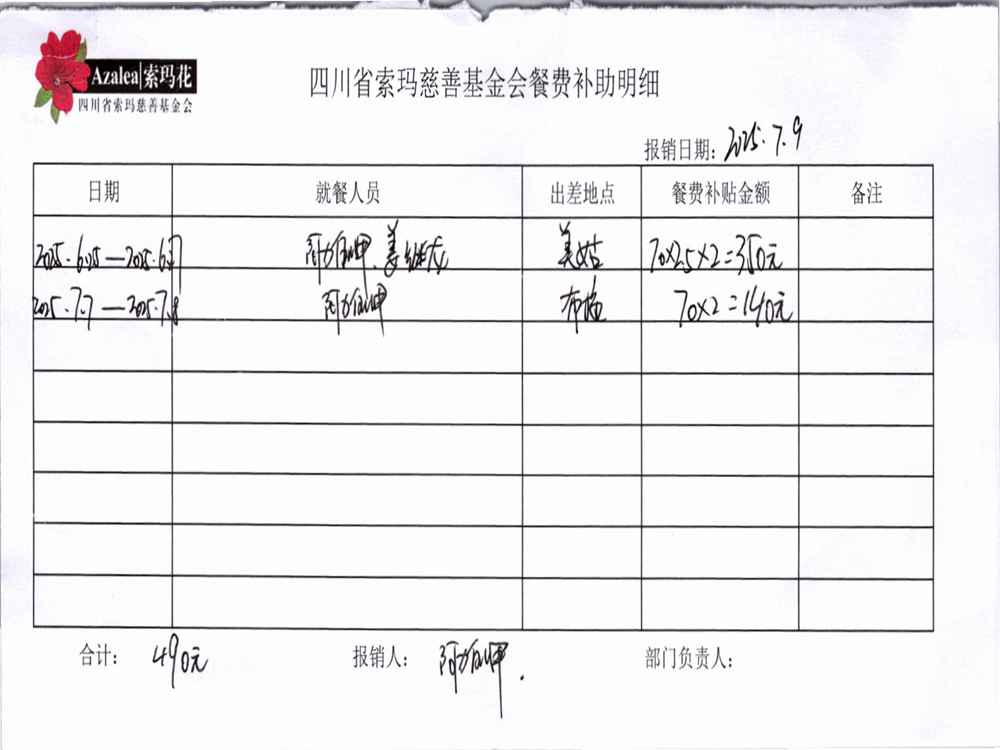 Azalea|索玛花
四川省索玛慈善基金会
四川省索玛慈善基金会餐费补助明细
报销日期：2025.7.9
日期 就餐人员 出差地点 餐费补贴金额 备注
2025.6.25—2025.6.27 美姑 70×2.5×2=350元
2025.7.7—2025.7.8 布拖 70×2=140元
合计： 490元 报销人： 部门负责人：